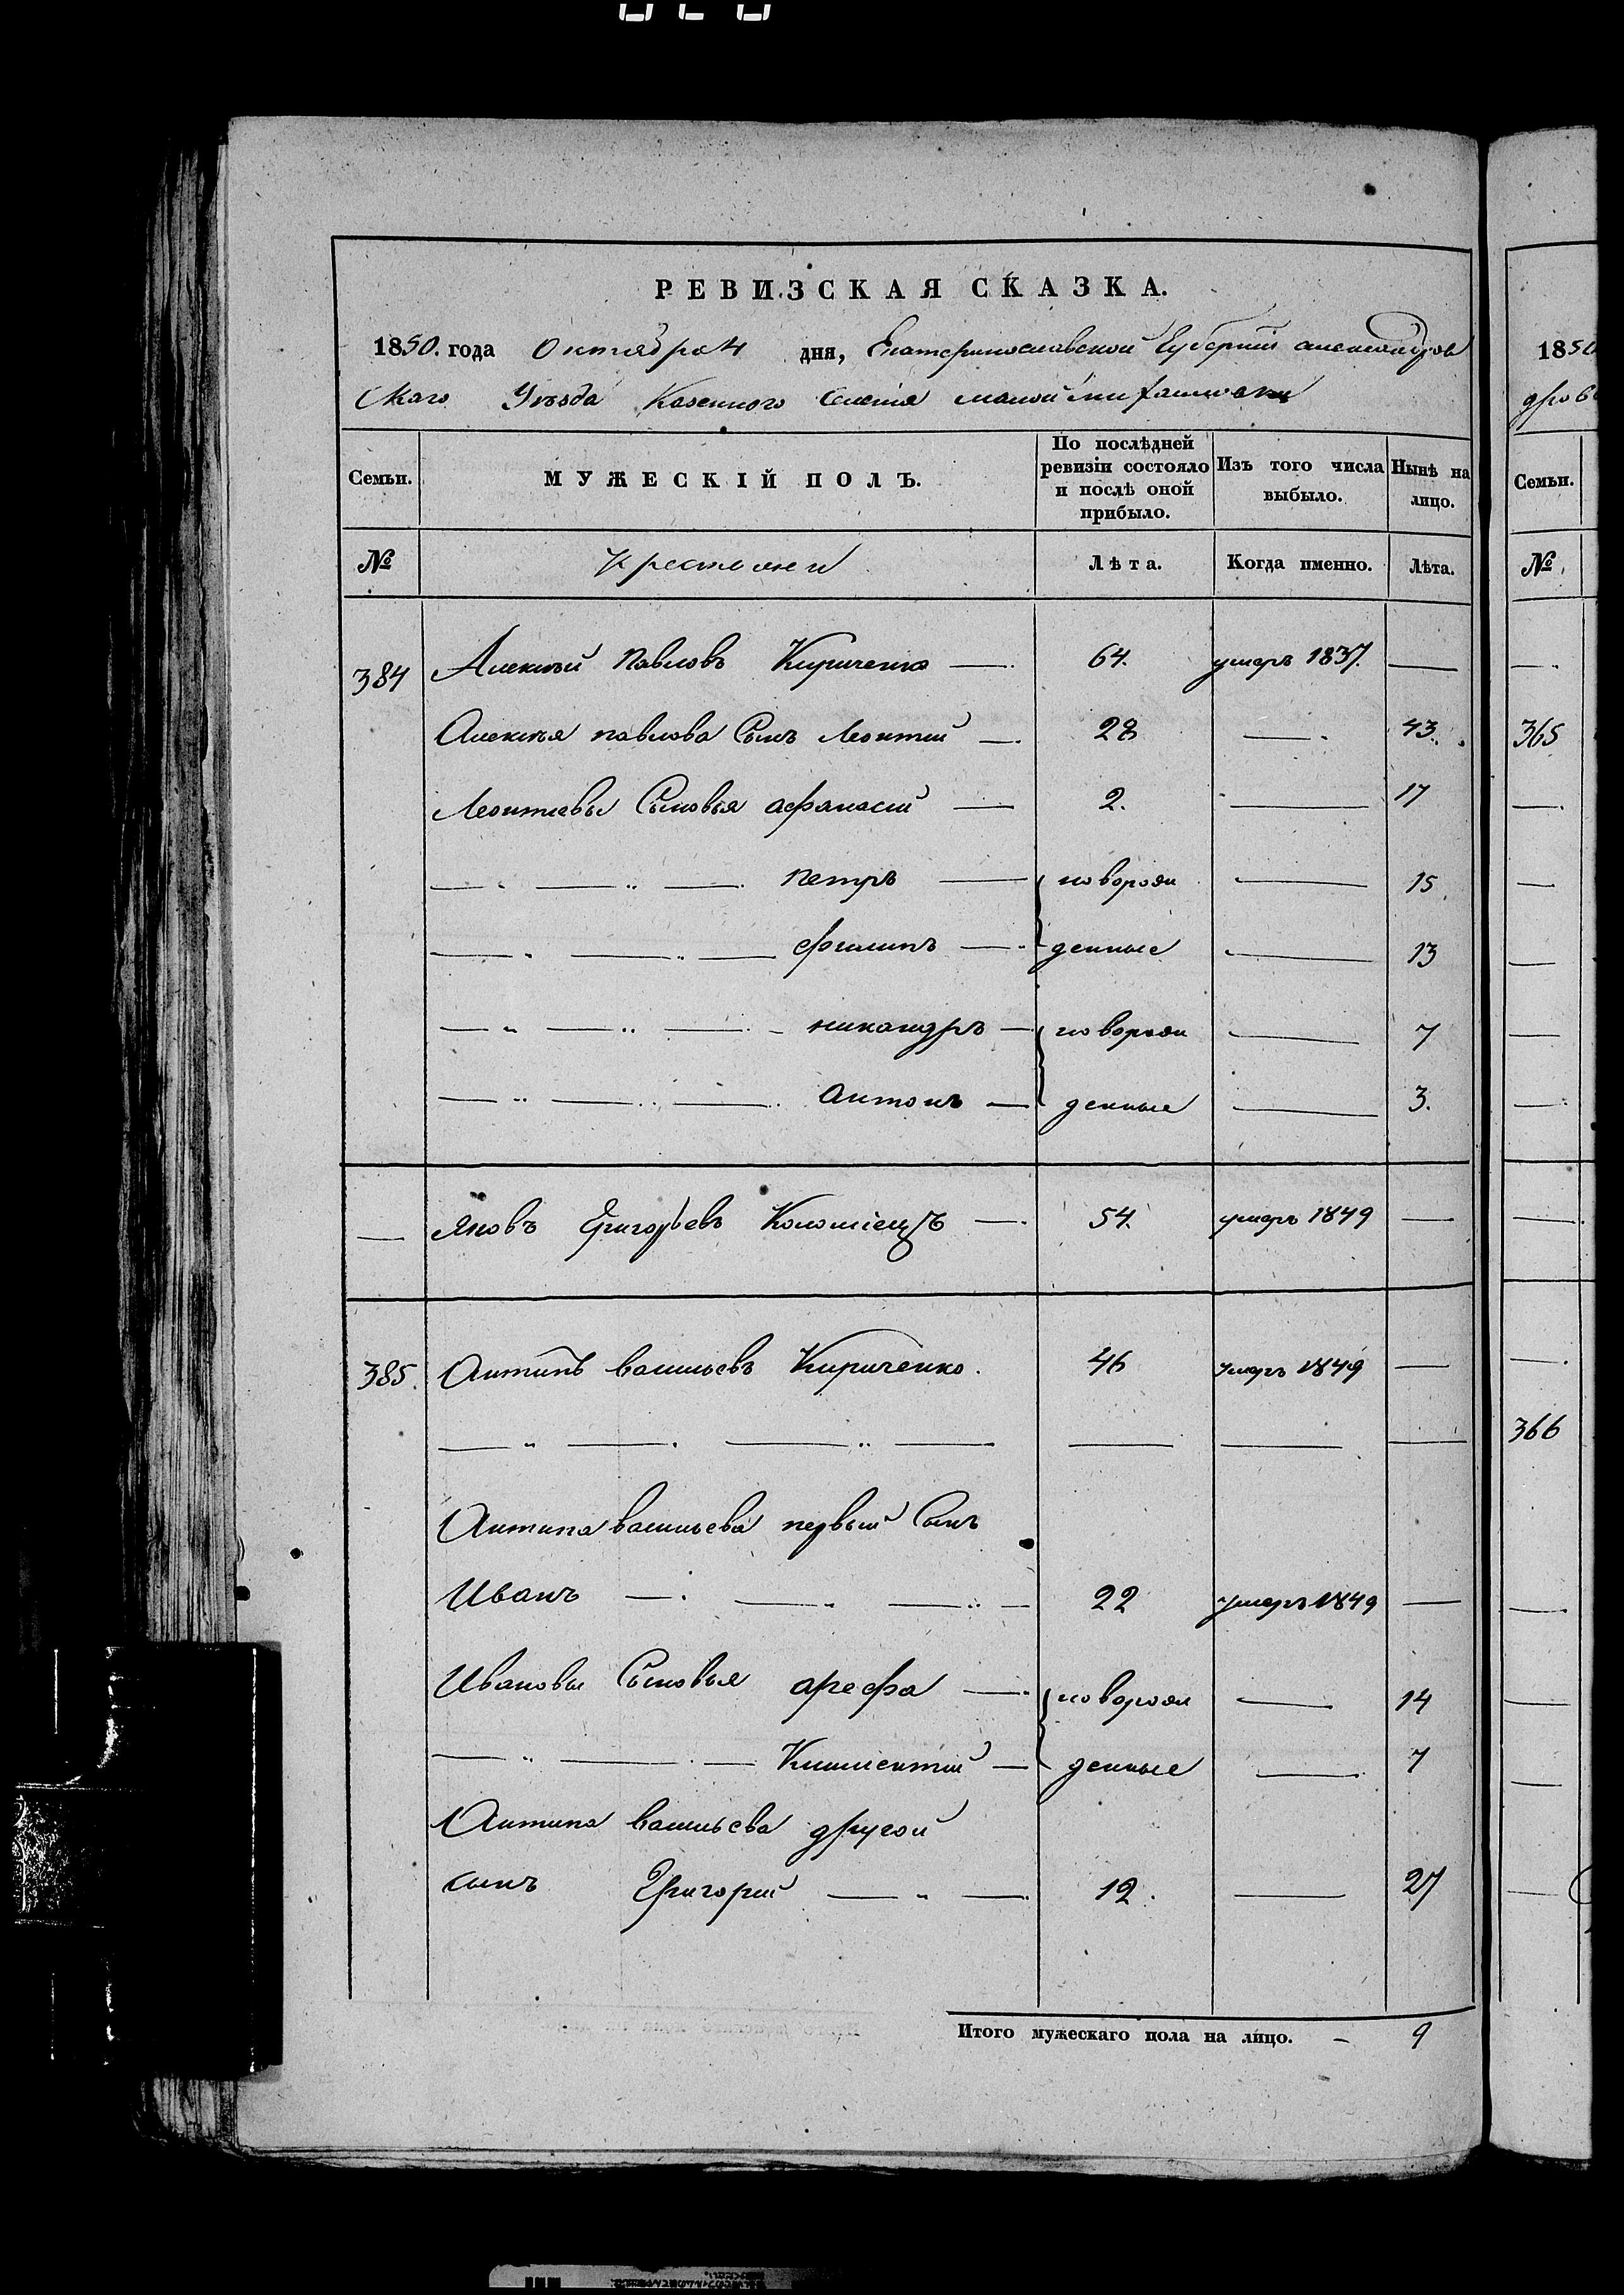 РЕВИЗСКАЯ СКАЗКА.
1850. года Октября 4 дня, Екатеринославской Губерніи александров
скаго Уѣзда Казеннаго Селенія малой михайловки
Семьи. МУЖЕСКІЙ ПОЛЪ. По послѣдней ревизіи состояло и послѣ оной прибыло. Изъ того числа выбыло. Нынѣ на лицо.
№ крестьяни Лѣта. Когда именно. Лѣта.
384 Алексѣй Павловъ Кириченко — 64. умеръ 1837. —
Алексѣя павлова Сынъ Леонтій — 28 — 43.
Леонтіевы Сыновья афанасій — 2. — 17
— " — " — петръ — новорож — 15.
— " — " — филипъ — денные — 13
— " — " — никандръ — новорож — 7
— " — " — антонъ — денные — 3.
— Яковъ Григорьевъ Коломіецъ — 54. умеръ 1849 —
385. Антипъ васильевъ Кириченко. 46 умеръ 1849 —
— " — " — " — — — —
Антипа васильева первый Сынъ
Иванъ — " — " — 22 умеръ 1849 —
Ивановы Сыновья арефа — новорож — 14
— " — " — Климентій — денные — 7
Антипа васильева другой
сынъ Григорій — " — 12. — 27
Итого мужескаго пола на лицо. — 9
185
дров
Семьи.
№
365
366